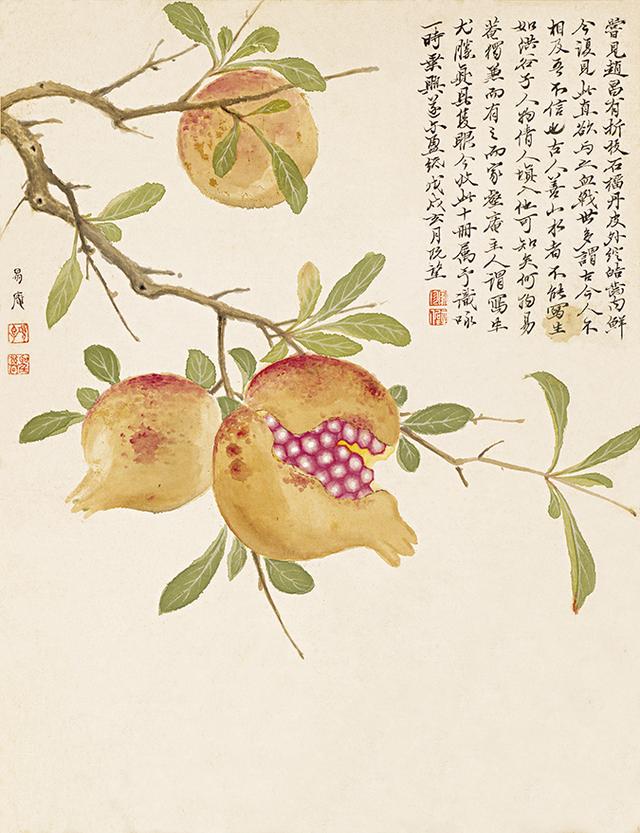 嘗見趙昌有折枝石榴丹皮外綻皓齒内鮮
今復見此真欲与之血戰世多謂古今人不
相及吾不信也古人善山水者不能寫生
如洪谷子人物倩人填入他可知矣何物易
菴獨兼而有之而家庵主人謂寫生
尤勝真具隻眼今收此十冊属予識咏
一時乗興遂亦盈紙戊戌月
易庵